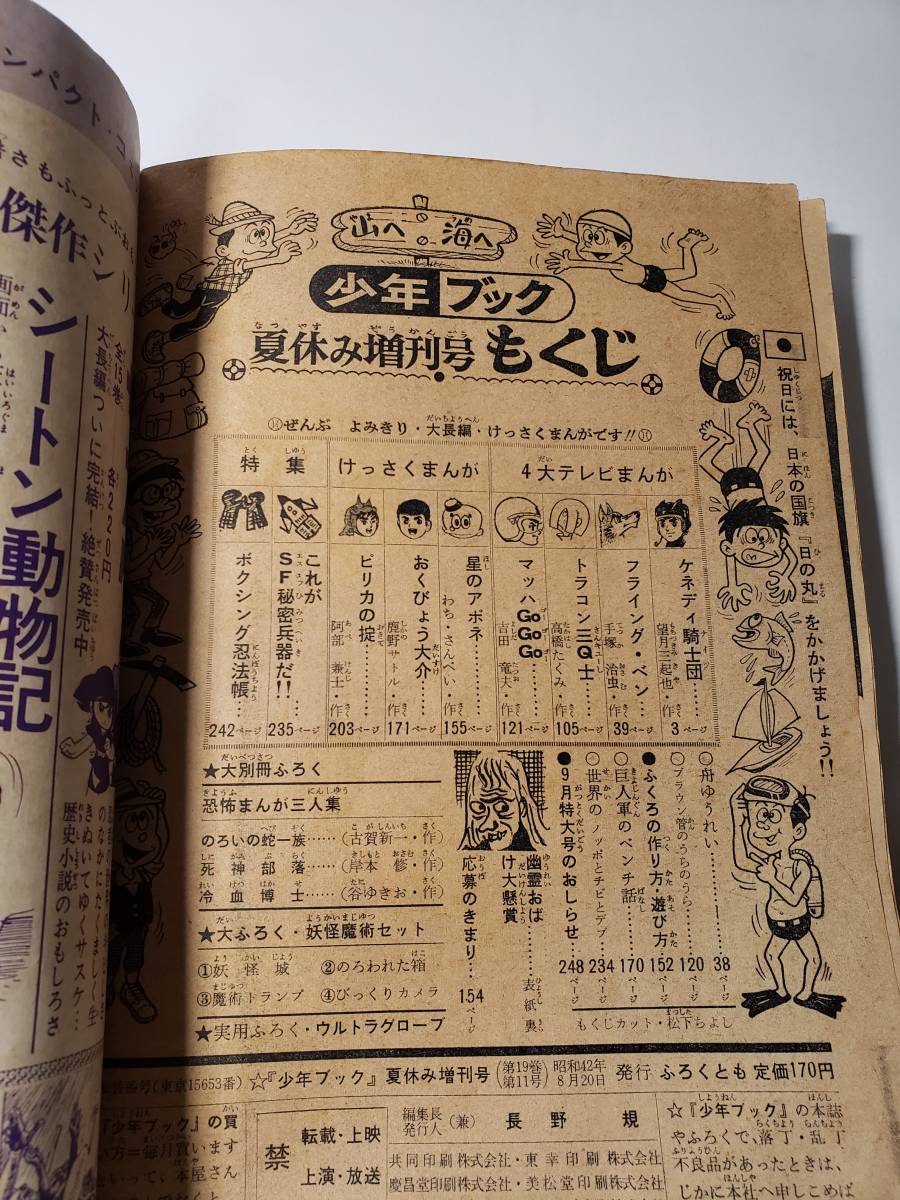 山へ海へ
少年ブック
夏休み増刊号もくじ
祝日には、日本の国旗『日の丸』をかかげましょう!!
ぜんぶ よみきり・大長編・けっさくまんがです!!
4大テレビまんが
ケネディ騎士団…望月三起也・作 3ページ
フライング・ベン…手塚治虫・作 39ページ
トラコン三Q士…高橋たくみ・作 105ページ
マッハGoGoGo…吉田竜夫・作 121ページ
けっさくまんが
星のアポネ…わち・さんぺい・作 155ページ
おくびょう大介…鹿野サトル・作 171ページ
ピリカの掟…阿部兼士・作 203ページ
特集
これがSF秘密兵器だ!!… 235ページ
ボクシング忍法帳… 242ページ
○舟ゆうれい… 38ページ
○ブラウン管のうらのうら… 120ページ
●ふくろの作り方・遊び方 152ページ
○巨人軍のベンチ話… 170ページ
○世界のノッポとチビとデブ… 234ページ
●9月特大号のおしらせ… 248ページ
幽霊おばけ大懸賞 表紙裏
応募のきまり… 154ページ
★大別冊ふろく
恐怖まんが三人集
のろいの蛇一族……(古賀新一・作)
死神部落……(岸本修・作)
冷血博士……(谷ゆきお・作)
★大ふろく・妖怪魔術セット
①妖怪城 ②のろわれた箱
③魔術トランプ ④びっくりカメラ
★実用ふろく・ウルトラグローブ
もくじカット・松下ちよし
番号(東京15653番) ☆『少年ブック』夏休み増刊号 (第19巻 第11号) 昭和42年8月20日 発行 ふろくとも 定価170円
☆『少年ブック』の本誌
やふろくで、落丁・乱丁
不良品があったときは、
じかに本社へ申しこめば
編集長 発行人 (兼) 長野規
共同印刷株式会社・東幸印刷株式会社
慶昌堂印刷株式会社・美松堂印刷株式会社
禁 転載・上映
上演・放送
『少年ブック』の買
い方=毎月買います
といって、本屋さん
ンパクト・コ
暑さもふっとぶ
傑作シリ
シートン動物記
全15巻 各220円
大長編ついに完結!絶賛発売中
のなかにたくましく生
きぬいてゆくサスケ…
歴史小説のおもしろさ